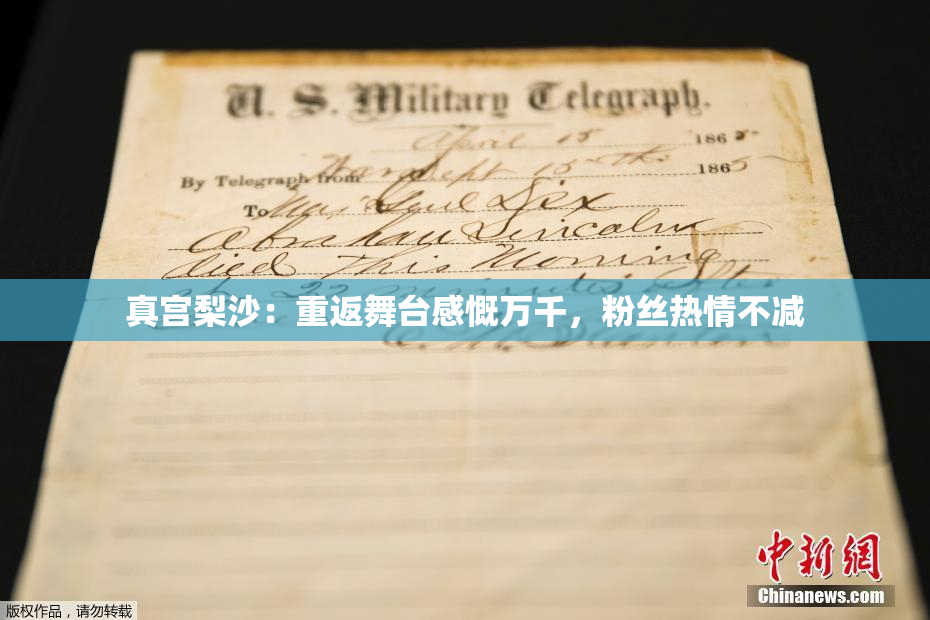 U. S. Military Telegraph.
April 15 1865
By Telegraph from War Dept 15th 1865
To Maj Genl Dix
Abraham Lincoln
died This Morning
at 22 minutes after
真宫梨沙：重返舞台感慨万千，粉丝热情不减
E. M. Stanton
中新网
Chinanews.com
版权作品，请勿转载